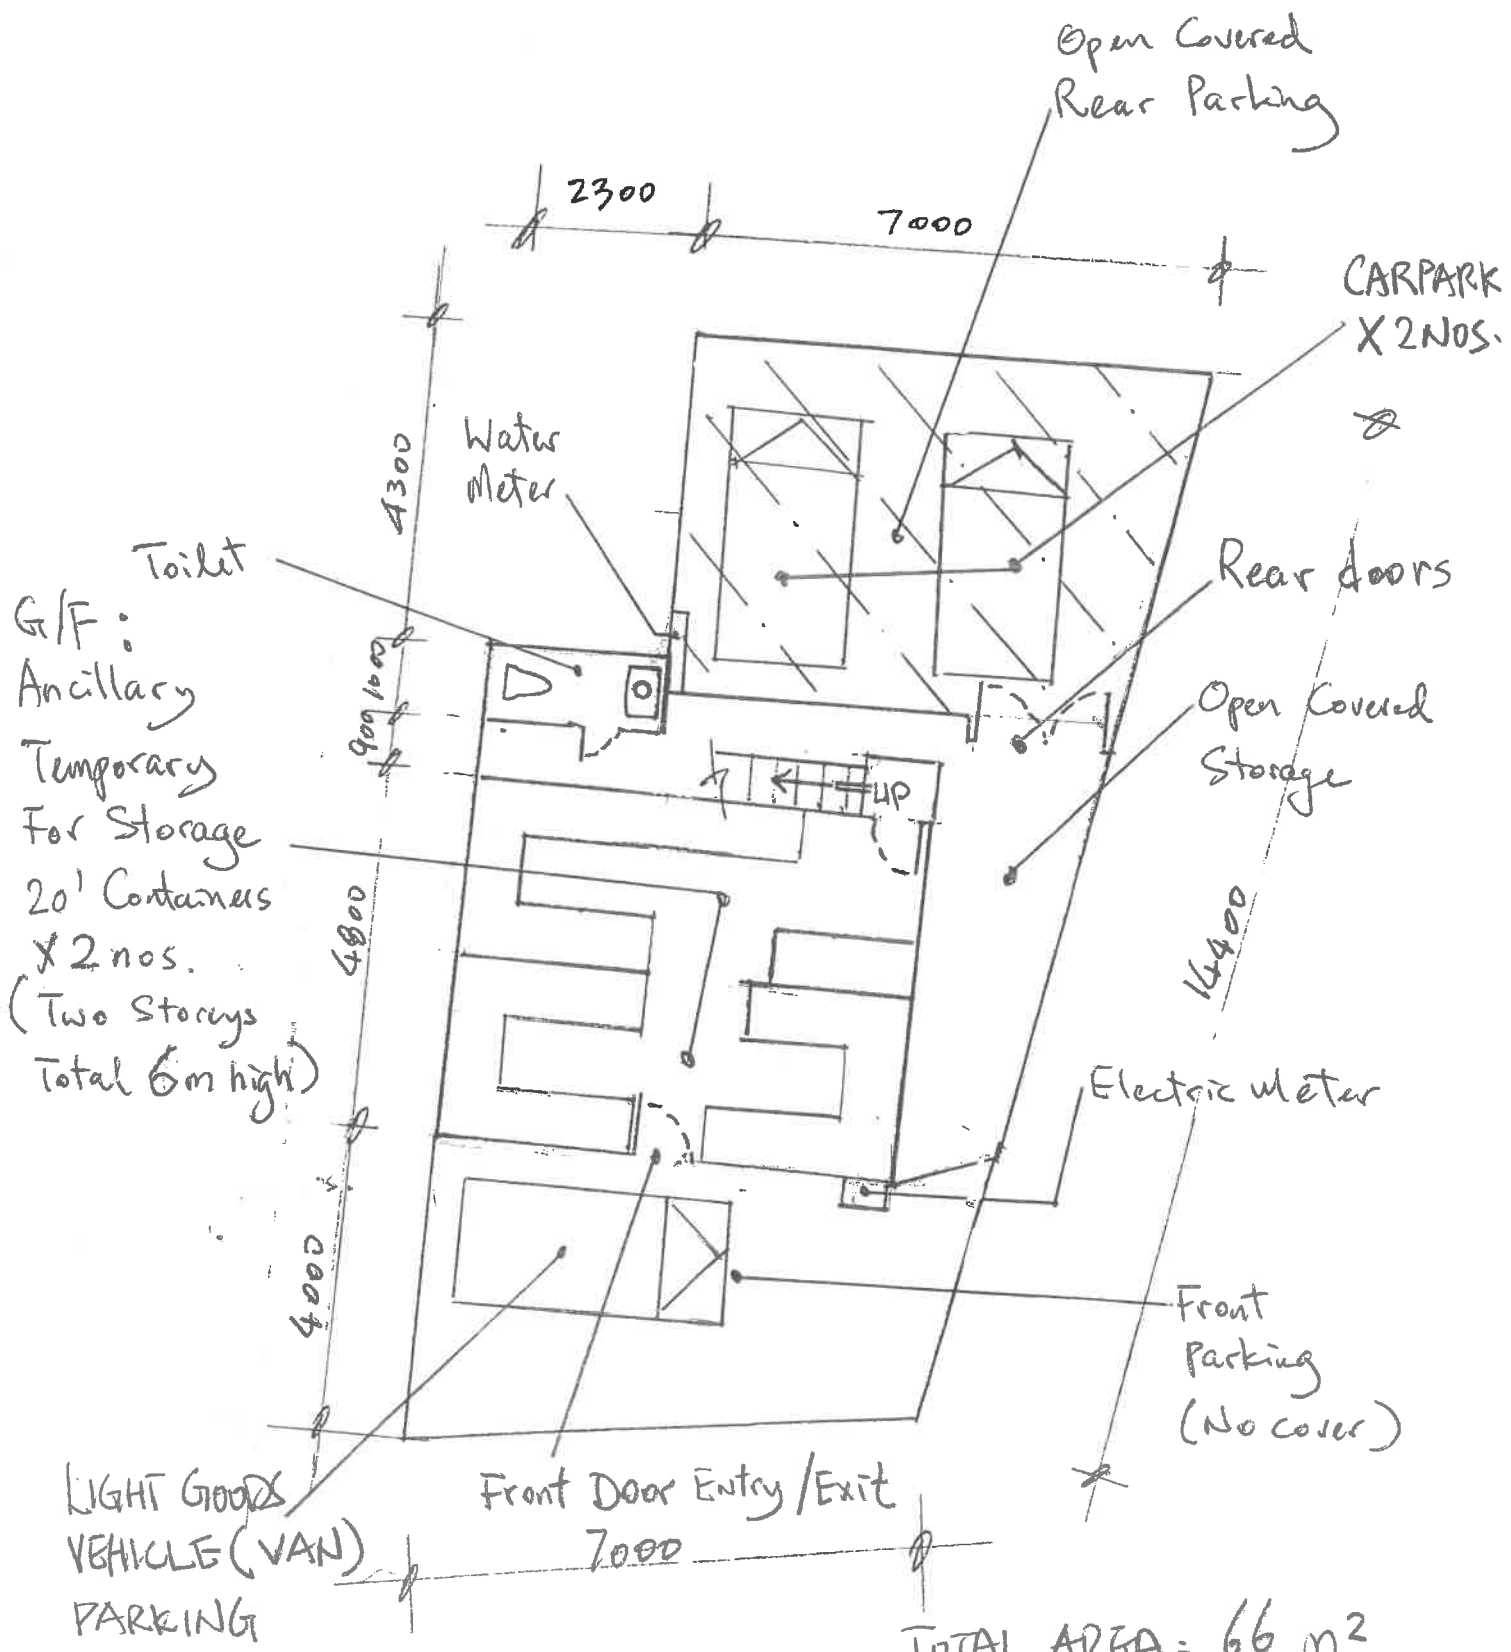 Open Covered
Rear Parking
2300
7000
CARPARK
X 2 NOS.
4300
Water
Meter
Toilet
Rear doors
G/F :
Ancillary
Temporary
For Storage
20' Containers
X 2 nos.
(Two Storeys
Total 6m high)
1000
900
Open Covered
Storage
UP
4800
14400
Electric Meter
4000
Front
Parking
(No cover)
LIGHT GOODS
VEHICLE (VAN)
PARKING
Front Door Entry/Exit
7000
TOTAL AREA: 66 m²